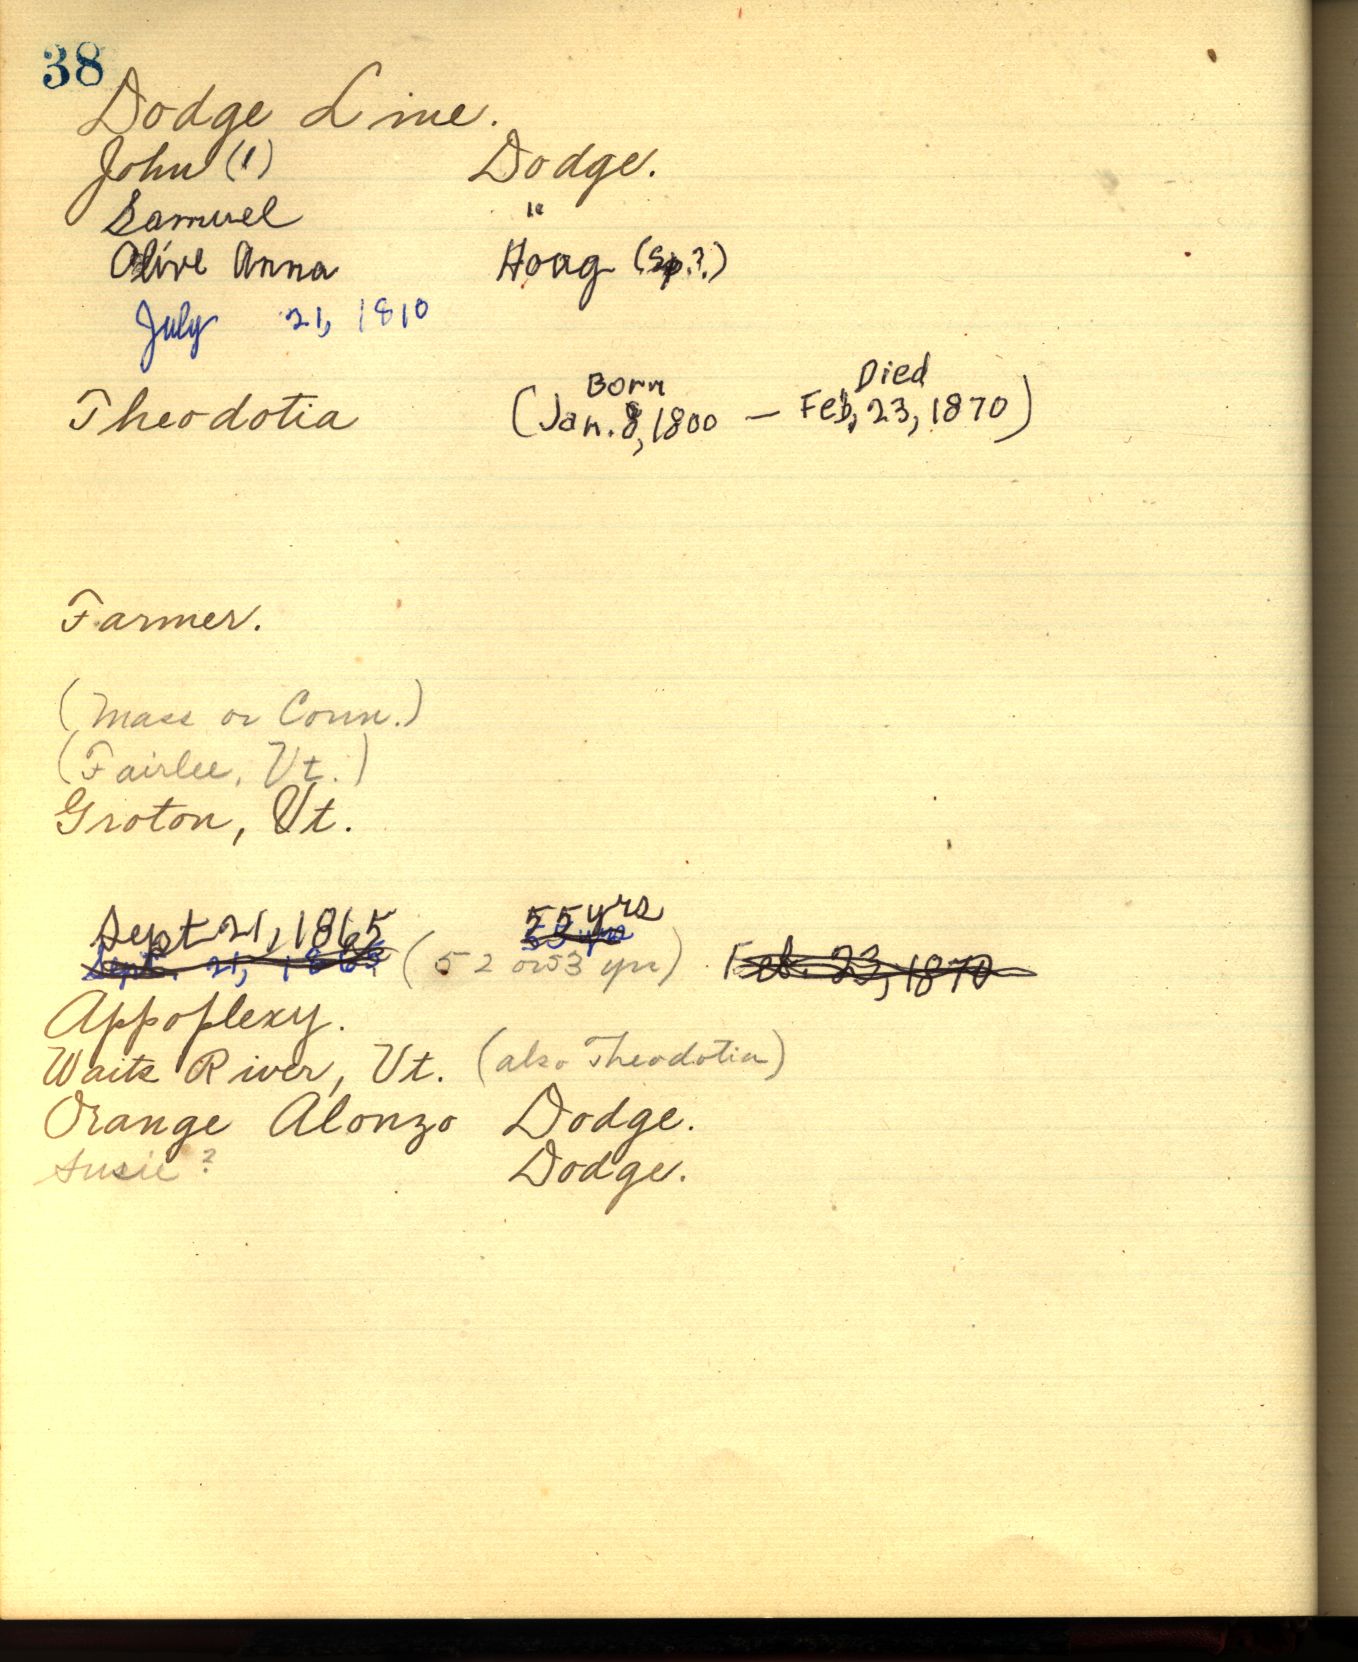 38
Dodge Line.
John (1) Dodge.
Samuel "
Olive Anna Hoag (Sp.?)
July 21, 1810
Born Died
Theodotia (Jan. 8, 1800 — Feb, 23, 1870)
Farmer.
(Mass or Conn.)
(Fairlee, Vt.)
Groton, Vt.
Sept 21, 1865 55 yrs
Sept. 21, 1865 (52 or 53 yrs) Feb. 23, 1870
Appoplexy.
Waits River, Vt. (also Theodotia)
Orange Alonzo Dodge.
Susie? Dodge.